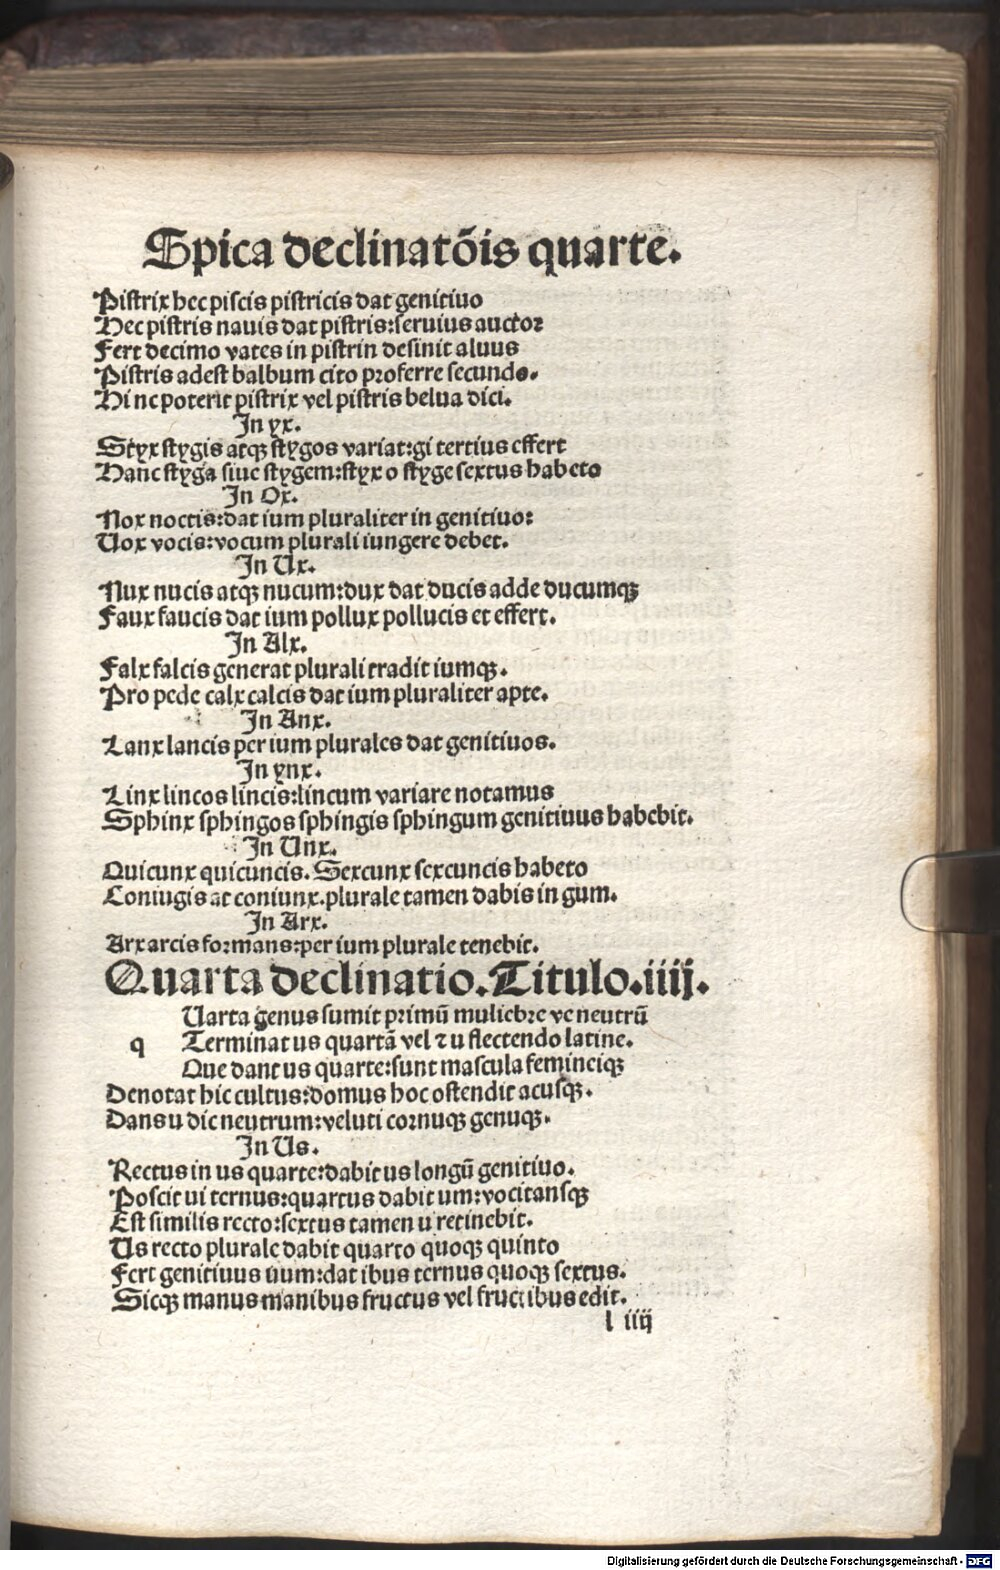 Spica declinatōis quarte.
Pistrix hec piscis pistricis dat genitiuo
Hec pistris nauis dat pistris:seruius auctor
Fert decimo vates in pistrin desinit aluus
Pistris adest balbum cito proferre secundo.
Hinc poterit pistrix vel pistris belua dici.
In yx.
Styx stygis atqꝫ stygos variat:gi tertius effert
Hanc styga siue stygem:styx o styge sextus habeto
In Ox.
Nox noctis:dat ium pluraliter in genitiuo:
Uox vocis:vocum plurali iungere debet.
In Ux.
Nux nucis atqꝫ nucum:dux dat ducis adde ducumqꝫ
Faux faucis dat ium pollux pollucis et effert.
In Alx.
Falx falcis generat plurali tradit iumqꝫ.
Pro pede calx calcis dat ium pluraliter apte.
In Anx.
Lanx lancis per ium plurales dat genitiuos.
In ynx.
Linx lincos lincis:lincum variare notamus
Sphinx sphingos sphingis sphingum genitiuus habebit.
In Unx.
Quicunx quicuncis. Sexcunx sexcuncis habeto
Coniugis at coniunx.plurale tamen dabis in gum.
In Arx.
Arx arcis formans:per ium plurale tenebit.
Quarta declinatio. Titulo.iiij.
Uarta genus sumit primū muliebre ve neutrū
q Terminat us quartā vel ⁊ u flectendo latine.
Que dant us quarte:sunt mascula femineiqꝫ
Denotat hic cultus:domus hoc ostendit acusqꝫ.
Dans u dic neutrum:veluti cornuqꝫ genuqꝫ.
In Us.
Rectus in us quarte:dabit us longū genitiuo.
Poscit ui ternus:quartus dabit um:vocitansqꝫ
Est similis recto:sextus tamen u retinebit.
Us recto plurale dabit quarto quoqꝫ quinto
Fert genitiuus uum:dat ibus ternus quoqꝫ sextus.
Sicqꝫ manus manibus fructus vel fructibus edit.
l iiij
Digitalisierung gefördert durch die Deutsche Forschungsgemeinschaft - DFG